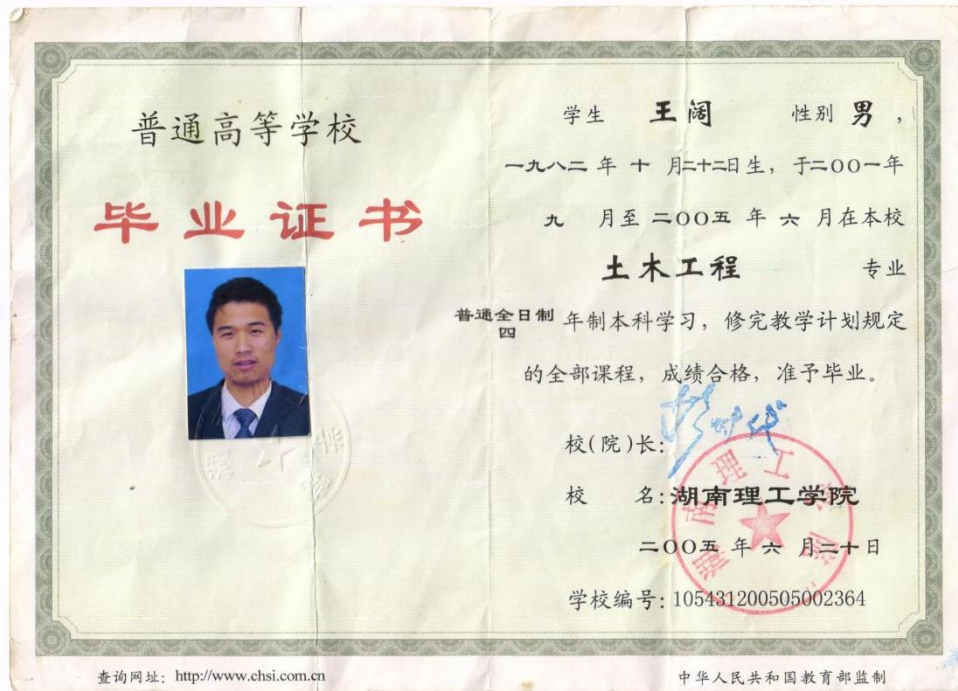 普通高等学校
毕业证书
学生 王阔 性别 男,
一九八二 年 十 月二十二日生，于二〇〇一年
九 月至 二〇〇五 年 六 月在本校
土木工程 专业
普通全日制
四 年制本科学习，修完教学计划规定
的全部课程，成绩合格，准予毕业。
校(院)长:
校 名:湖南理工学院
二〇〇五 年 六 月二十日
学校编号: 105431200505002364
湖南理工学院
查询网址: http://www.chsi.com.cn
中华人民共和国教育部监制